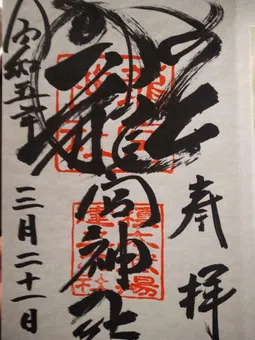 奉拝
龍宮神社
令和五年
三月二十一日